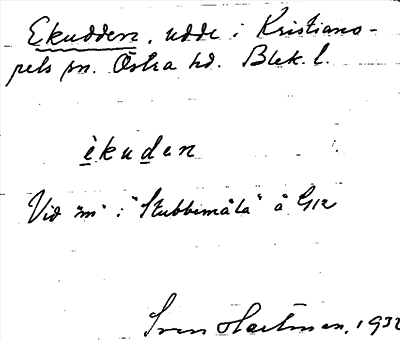 Ekudden, udde i Kristiano-
pels sn. Östra hd. Blek. l.
èkuden
Vid "m" i "Stubbemåla" å G12
Sven Hartman, 193